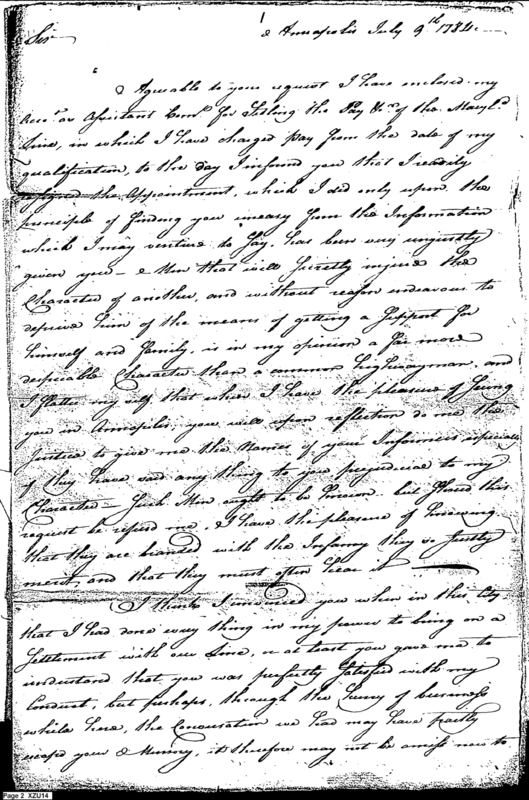 Annapolis July 9th 1784
Sir
Agreable to your request I have enclosed my
Accot as Assistant Comr for Setling the Pay &ca of the Maryld
Line, in which I have charged pay from the date of my
qualification, to the day I informd you that I readily
resigned the Appointment, which I did only upon the
principle of finding you uneasy from the Information
which I may venture to say, has been very unjustly
given you – Men that will secretly injure the
Character of another, and without reason endeavour to
deprive him of the means of getting a Support for
himself and family, is in my opinion a far more
despicable Character than a common highwayman, and
I flatter my self that when I have the pleasure of Seeing
you in Annapolis, you will upon reflection do me the
Justice to give me the Names of your Informers especially
if they have said any thing to you prejudicial to my
Character – Such Men ought to be known but should this
request be refused me, I have the pleasure of knowing
that they are branded with the Infamy they so Justly
merit, and that they must often hear it
I think I convinced you when in this City
that I had done every thing in my power to bring on a
Settlement with our Line, or at least you gave me to
understand that you was perfectly Satisfied with my
Conduct, but perhaps, through the hurry of business
while here, the Conversation we had may have partly
escaped your Memory, it therefore may not be amiss now to
Page 2 XZU14